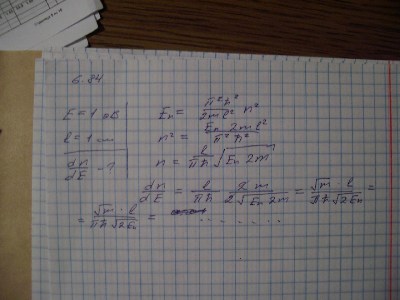 6.84
E = 1 эВ
l = 1 см
dn/dE - ?
Eₙ = π²ħ²/2ml² n²
n² = Eₙ 2ml²/π²ħ²
n = l/πħ √(Eₙ 2m)
dn/dE = l/πħ 2m/2√(Eₙ 2m) = √m · l/πħ√(2Eₙ) =
= √m · l/πħ√(2Eₙ) = . . . . . . .